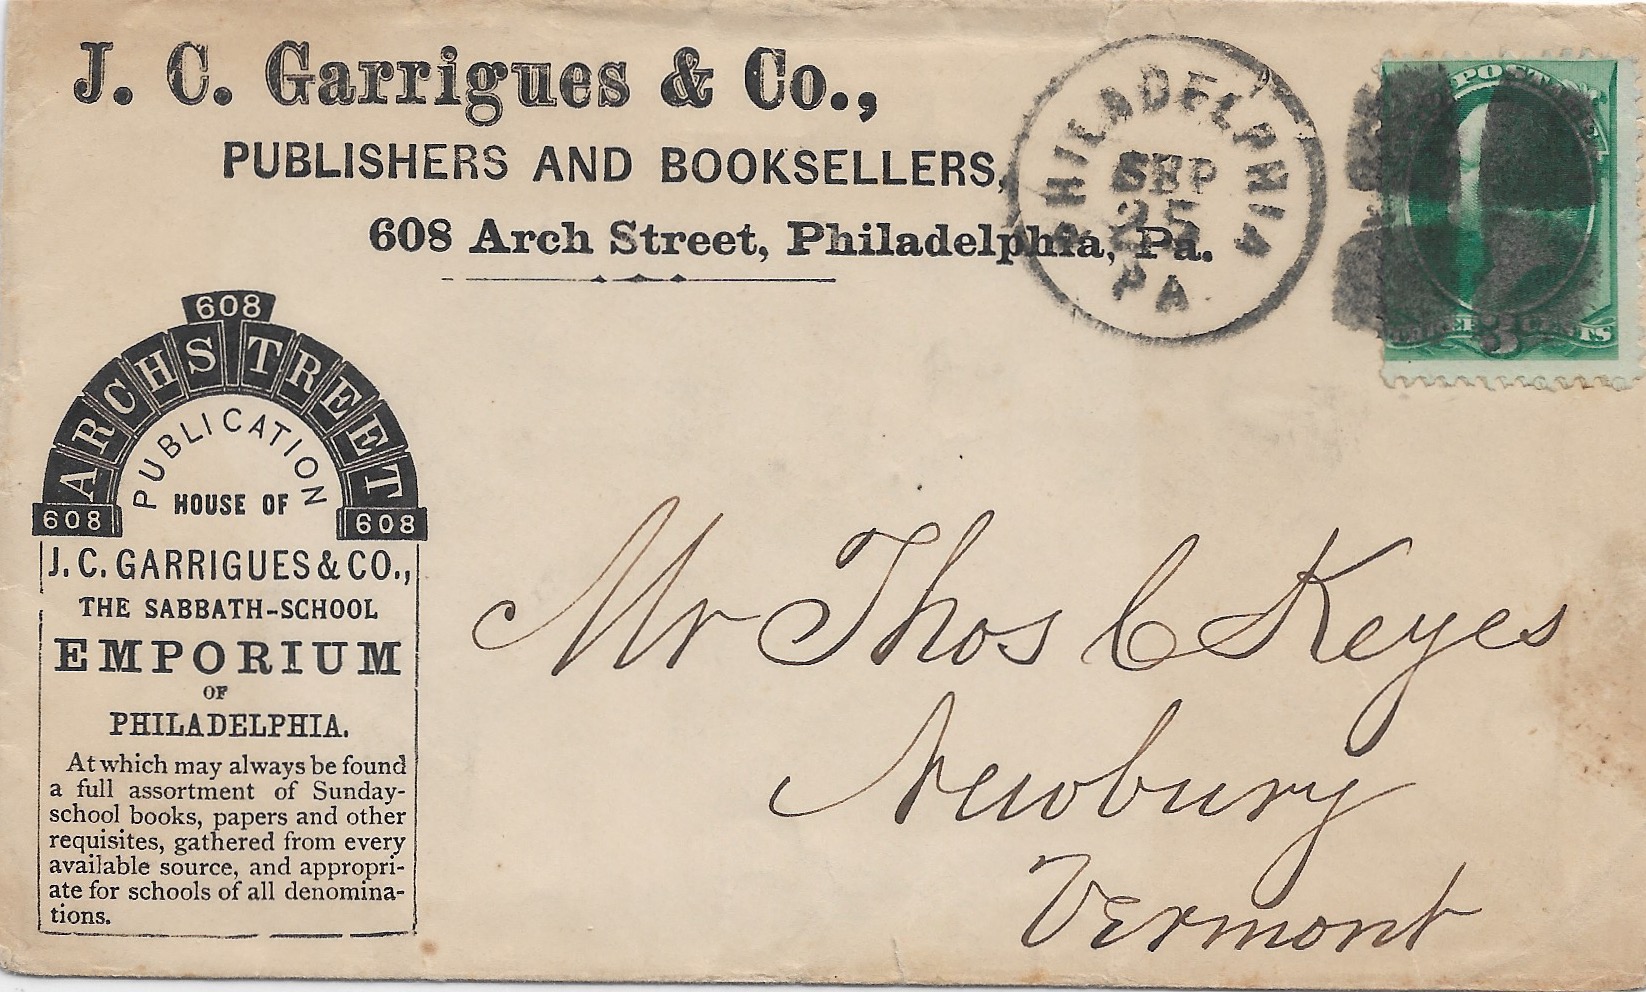 J. C. Garrigues & Co.,
PUBLISHERS AND BOOKSELLERS,
608 Arch Street, Philadelphia, Pa.
PHILADELPHIA
SEP
25
PA
POSTAGE
THREE 3 CENTS
608
ARCH STREET
608 608
PUBLICATION
HOUSE OF
J. C. GARRIGUES & CO.,
THE SABBATH-SCHOOL
EMPORIUM
OF
PHILADELPHIA.
At which may always be found
a full assortment of Sunday-
school books, papers and other
requisites, gathered from every
available source, and appropri-
ate for schools of all denomina-
tions.
Mr Thos C Keyes
Newbury
Vermont